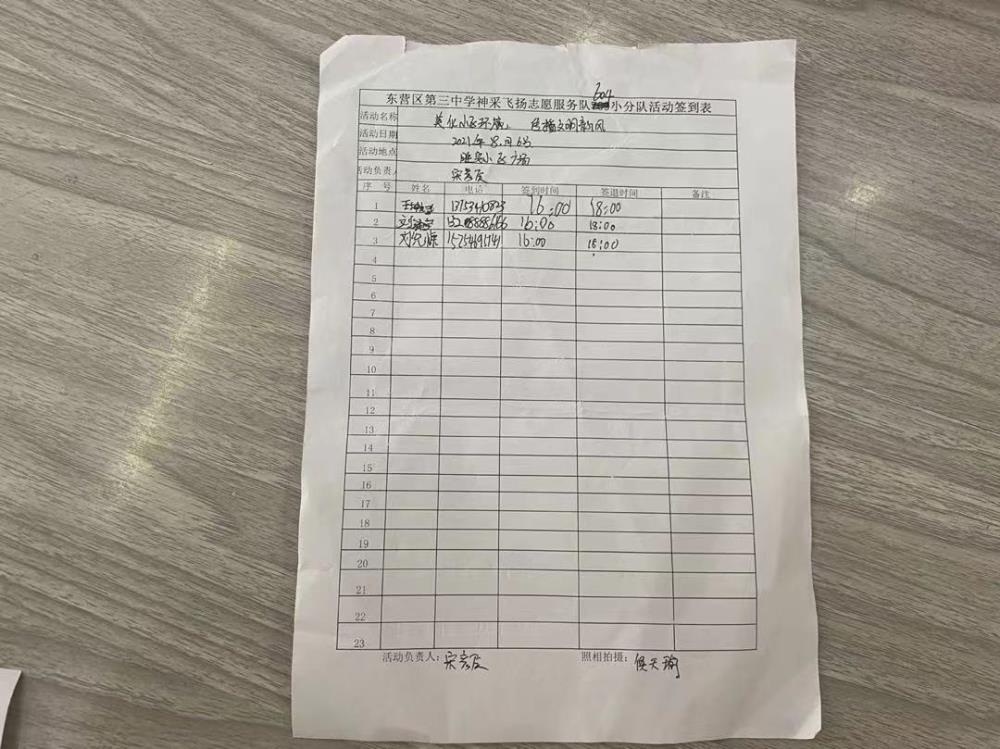 604
东营区第三中学神采飞扬志愿服务队小分队活动签到表
活动名称 美化小区环境, 传播文明新风
活动日期 2021年8月6号
活动地点 小区广场
活动负责人
序 号 姓名 电话 签到时间 签退时间 备注
1 16:00 18:00
2 16:00 18:00
3 刘 15754691741 16:00 18:00
4
5
6
7
8
9
10
11
12
13
14
15
16
17
18
19
20
21
22
23
活动负责人: 照相拍摄: 侯天瑜